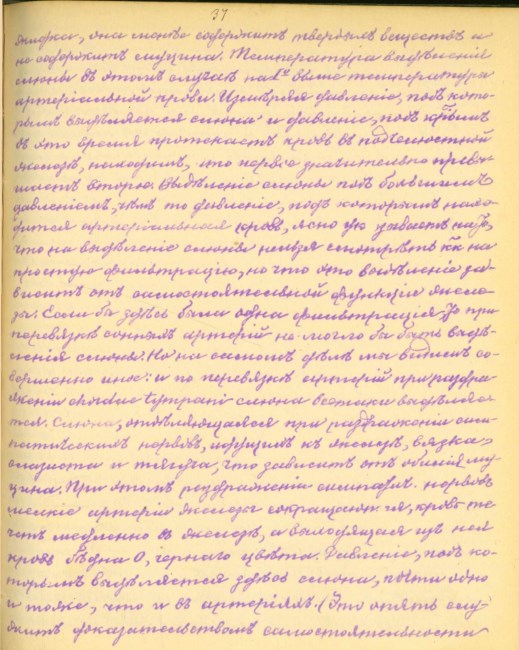 37
жидка, она менѣе содержитъ твердыхъ веществъ и
не содержитъ муцина. Температура выдѣленія
слюны въ этомъ случаѣ на 1° выше температуры
артеріальной крови. Измѣряя давленіе, подъ кото-
рымъ выдѣляется слюна и давленіе, подъ к-рымъ
въ это время протекаетъ кровь въ подчелюстной
железѣ, находимъ, что первое значительно превы-
шаетъ второе. Выдѣленіе слюны подъ большимъ
давленіемъ, чѣмъ то давленіе, подъ которымъ нахо-
дится артеріальная кровь, ясно уже указываетъ на то,
что на выдѣленіе слюны нельзя смотрѣть к-къ на
простую фильтрацію, но что это выдѣленіе за-
виситъ отъ самостоятельной функціи желе-
зы. Если бы здѣсь была одна фильтрація, то при
перевязкѣ сонныхъ артерій не могло бы быть выдѣ-
ленія слюны. Но на самомъ дѣлѣ мы видимъ со-
вершенно иное: и по перевязкѣ артерій при раздра-
женіи chordae tympani слюна всетаки выдѣляе-
тся. Слюна, отдѣляющаяся при раздраженіи сим-
патическихъ нервовъ, идущихъ къ железѣ, вязка,
слизиста и тягуча, что зависитъ отъ обилія му-
цина. При этомъ раздраженіи симпатич. нервовъ
мелкія артеріи железы сокращаются, кровь те-
четъ медленно въ железѣ, и выходящая изъ нея
кровь бѣдна O, чернаго цвѣта. Давленіе, подъ ко-
торымъ выдѣляется здѣсь слюна, почти одно
и тоже, что и въ артеріяхъ. (Это опять слу-
житъ доказательствомъ самостоятельности